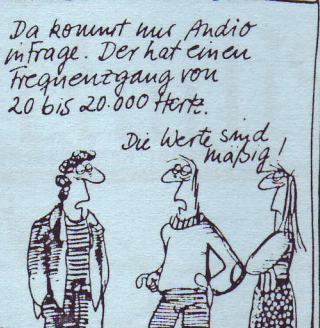 Da kommt nur Audio
in Frage. Der hat einen
Frequenzgang von
20 bis 20.000 Hertz.
Die Werte sind
mäßig!